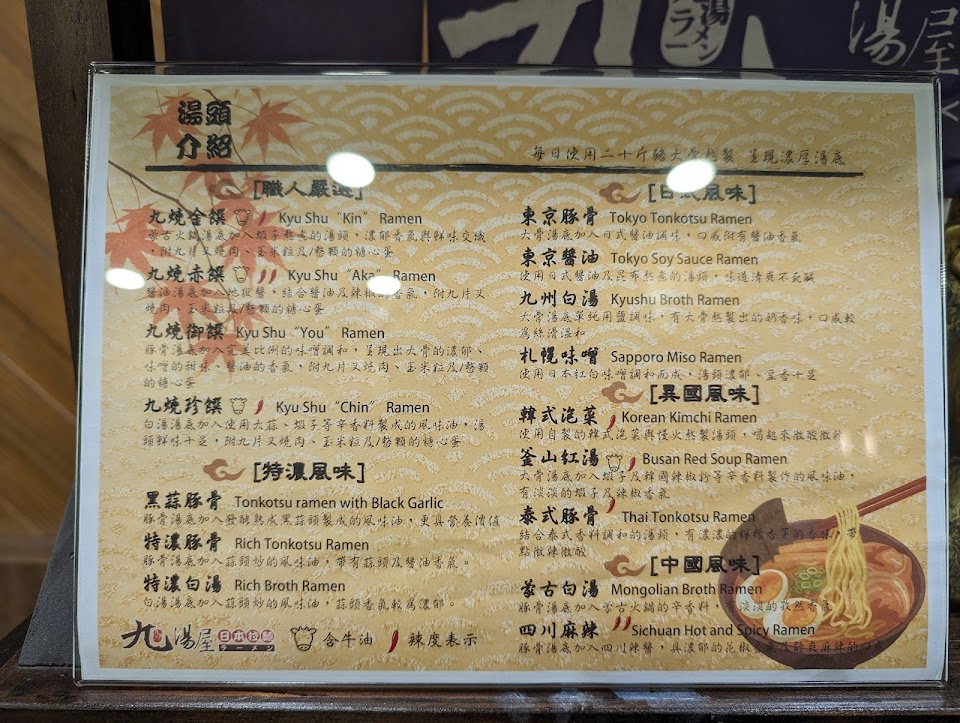 湯メン
ラー
湯屋
湯頭
介紹
每日使用二十斤豬大骨熬製 呈現濃厚湯底
[職人嚴選]
九燒金饌 Kyu Shu “Kin” Ramen
蒙古火鍋湯底加入蝦子熬煮的湯頭,濃郁香氣與鮮味交織
,附九片叉燒肉、玉米粒及1/2顆的糖心蛋
九燒赤饌 Kyu Shu “Aka” Ramen
醬油湯底加入地獄醬,結合醬油及辣椒的香氣,附九片叉
燒肉、玉米粒及1/2顆的糖心蛋
九燒御饌 Kyu Shu “You” Ramen
豚骨湯底加入完美比例的味噌調和,呈現出大骨的濃郁、
味噌的甜味、醬油的香氣,附九片叉燒肉、玉米粒及1/2顆
的糖心蛋
九燒珍饌 Kyu Shu “Chin” Ramen
白湯湯底加入使用大蒜、蝦子等辛香料製成的風味油,湯
頭鮮味十足,附九片叉燒肉、玉米粒及1/2顆的糖心蛋
[特濃風味]
黑蒜豚骨 Tonkotsu ramen with Black Garlic
豚骨湯底加入發酵熟成黑蒜頭製成的風味油,更具營養價值
特濃豚骨 Rich Tonkotsu Ramen
豚骨湯底加入蒜頭炒的風味油,帶有蒜頭及醬油香氣。
特濃白湯 Rich Broth Ramen
白湯湯底加入蒜頭炒的風味油,蒜頭香氣較為濃郁。
九湯屋 日本拉麵 ラーメン 含牛油 辣度表示
[日式風味]
東京豚骨 Tokyo Tonkotsu Ramen
大骨湯底加入日式醬油調味,口感附有醬油香氣
東京醬油 Tokyo Soy Sauce Ramen
使用日式醬油及昆布熬煮的湯頭,味道清爽不死鹹
九州白湯 Kyushu Broth Ramen
大骨湯底單純用鹽調味,有大骨熬製出的奶香味,口感較
為絲滑溫和
札幌味噌 Sapporo Miso Ramen
使用日本紅白味噌調和而成,湯頭濃郁、豆香十足
[異國風味]
韓式泡菜 Korean Kimchi Ramen
使用自製的韓式泡菜與慢火熬製湯頭,喝起來微酸微辣
釜山紅湯 Busan Red Soup Ramen
大骨湯底加入蝦子及韓國辣椒粉等辛香料製作的風味油,
有淡淡的蝦子及辣椒香氣
泰式豚骨 Thai Tonkotsu Ramen
結合泰式香料調和的湯頭,有濃濃的檸檬香茅的香味,帶
點微辣微酸
[中國風味]
蒙古白湯 Mongolian Broth Ramen
豚骨湯底加入蒙古火鍋的辛香料,有淡淡的孜然香氣
四川麻辣 Sichuan Hot and Spicy Ramen
豚骨湯底加入四川辣醬,具濃郁的花椒香氣及舒爽麻辣的口感